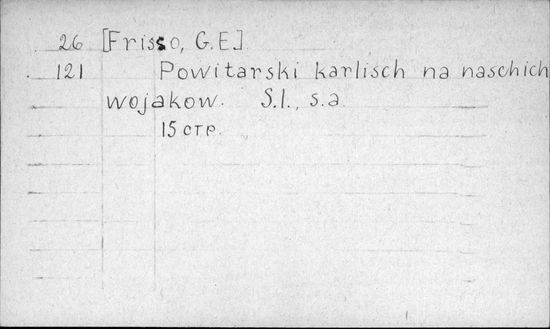 26 [Frisso, G.E.]
121 Powitarski karlisch na naschich
wojakow. S.l., s.a.
15 стр.